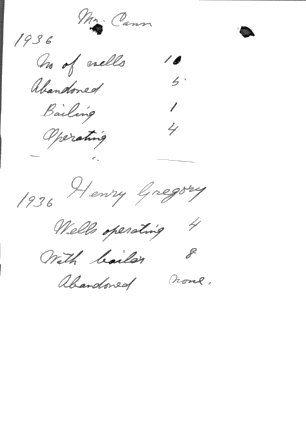 Mr. Cann
1936
No of wells 10
Abandoned 5
Bailing 1
Operating 4
— "
1936 Henry Gregory
Wells operating 4
With bailer 8
Abandoned none.